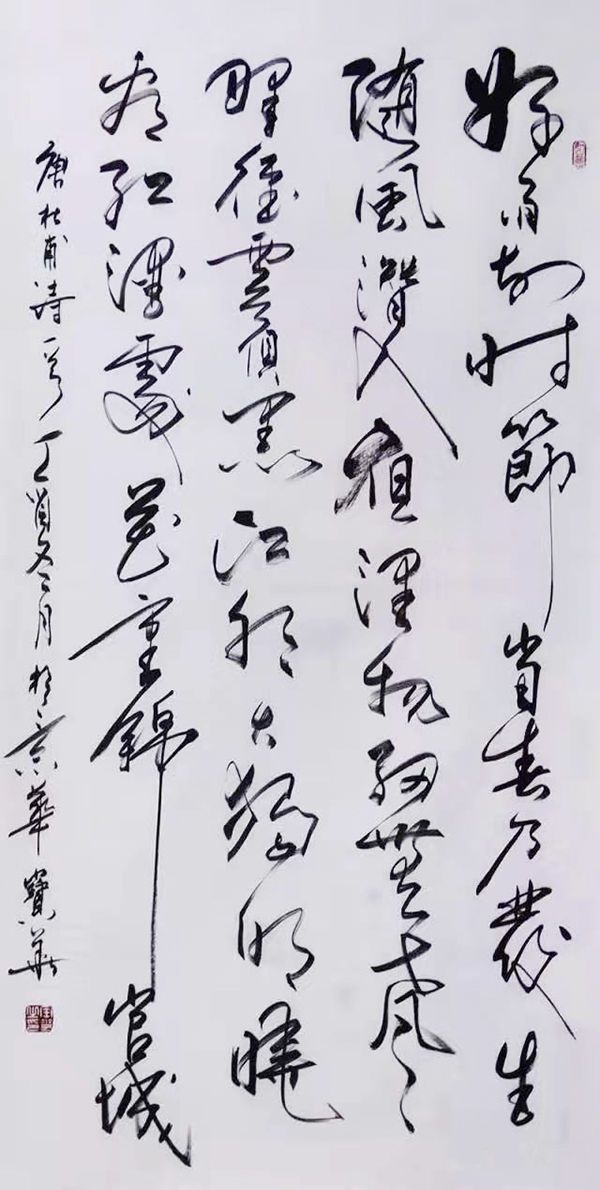 好雨知時節當春乃發生
隨風潛入夜潤物細無聲
野徑雲俱黑江船火獨明曉
看紅濕處花重錦官城
唐杜甫詩一首丁酉冬月於京華寶